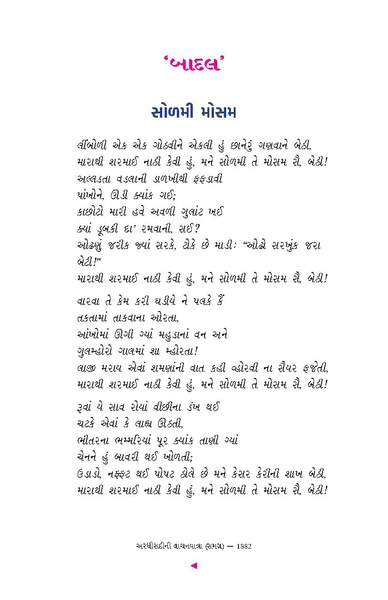 ‘બાદલ’
સોળમી મોસમ
લીંબોળી એક એક ગોઠવીને એકલી હું છાનેરું ગણવાને બેઠી,
મારાથી શરમાઈ નાઠી કેવી હું, મને સોળમી તે મોસમ રૈ, બેઠી!
અલ્લડતા વડલાની ડાળખીથી ફફડાવી
પાંખોને, ઊડી ક્યાંક ગઈ;
કાછોટો મારી હવે અવળી ગુલાંટ ખઈ
ક્યાં ડૂબકી દા’ રમવાની, સઈ?
ઓઢણું જરીક જ્યાં સરકે, ટોકે છે માડી: “ઓઢો સરખુંક જરા
બેટી!”
મારાથી શરમાઈ નાઠી કેવી હું, મને સોળમી તે મોસમ રૈ, બેઠી!
વારવા તે કેમ કરી ઘડીયે ને પલકે કૈં
તકતામાં તાકવાના ઓરતા,
આંખોમાં ઊગી ગ્યાં મહુડાનાં વન અને
ગુલમ્હોરો ગાલમાં શા મ્હોરતા!
લાજી મરાય એવાં શમણાંની વાત કહી વ્હોરવી ના સૈયર ફજેતી,
મારાથી શરમાઈ નાઠી કેવી હું, મને સોળમી તે મોસમ રૈ, બેઠી!
રૂવાં યે સાવ રોયાં વીછીના ડંખ થઈ
ચટકે એવાં કે લાહ્ય ઊઠતી,
ભીતરના ભમ્મરિયાં પૂર ક્યાંક તાણી ગ્યાં
ચેનને હું બાવરી થઈ ખોળતી;
ઉડાડો, નફ્ફટ થઈ પોપટ ઠોલે છે મને કેસર કેરીની શાખ બેઠી,
મારાથી શરમાઈ નાઠી કેવી હું, મને સોળમી તે મોસમ રૈ, બેઠી!
અરધી સદીની વાચનયાત્રા (સમગ્ર) — 1882